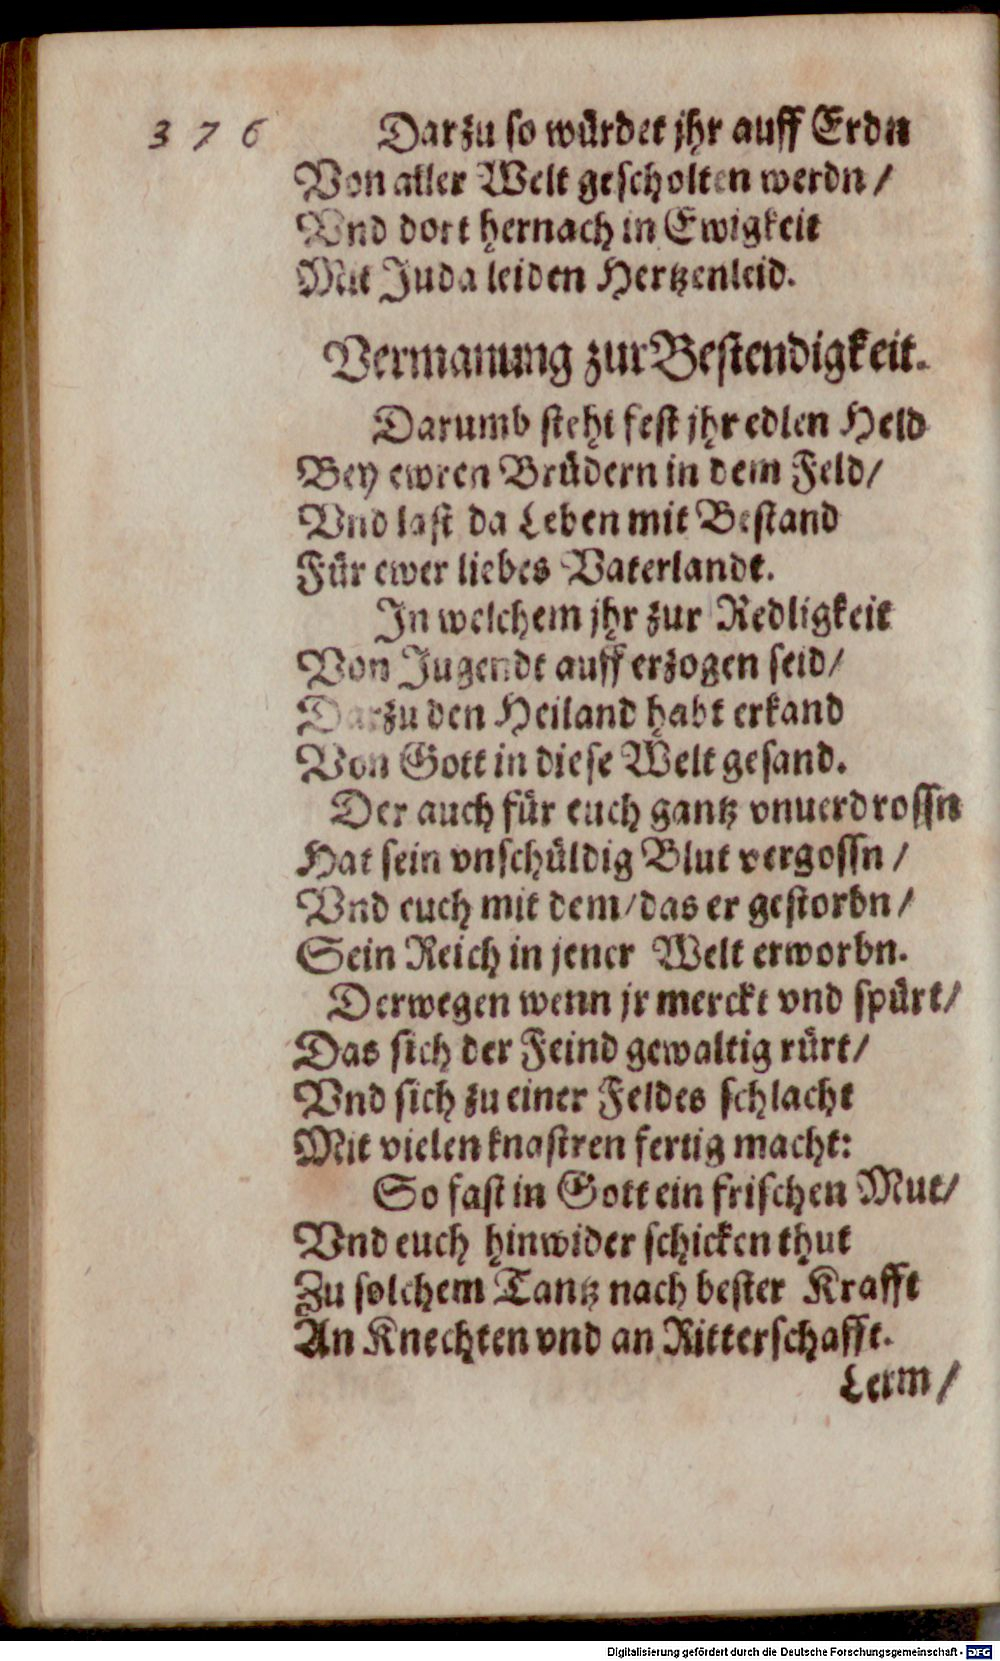 376
Darzu so würdet jhr auff Erdn
Von aller Welt gescholten werdn /
Vnd dort hernach in Ewigkeit
Mit Juda leiden Hertzenleid.
Vermanung zur Bestendigkeit.
Darumb steht fest jhr edlen Held
Bey ewren Brüdern in dem Feld /
Vnd last da Leben mit Bestand
Für ewer liebes Vaterlandt.
In welchem jhr zur Redligkeit
Von Jugendt auff erzogen seid /
Darzu den Heiland habt erkand
Von Gott in diese Welt gesand.
Der auch für euch gantz vnuerdrossn
Hat sein vnschüldig Blut vergossn /
Vnd euch mit dem / das er gestorbn /
Sein Reich in jener Welt erworbn.
Derwegen wenn jr merckt vnd spürt /
Das sich der Feind gewaltig rürt /
Vnd sich zu einer Feldes schlacht
Mit vielen knastren fertig macht:
So fast in Gott ein frischen Mut /
Vnd euch hinwider schicken thut
Zu solchem Tantz nach bester Krafft
An Knechten vnd an Ritterschafft.
Lerm /
Digitalisierung gefördert durch die Deutsche Forschungsgemeinschaft - DFG